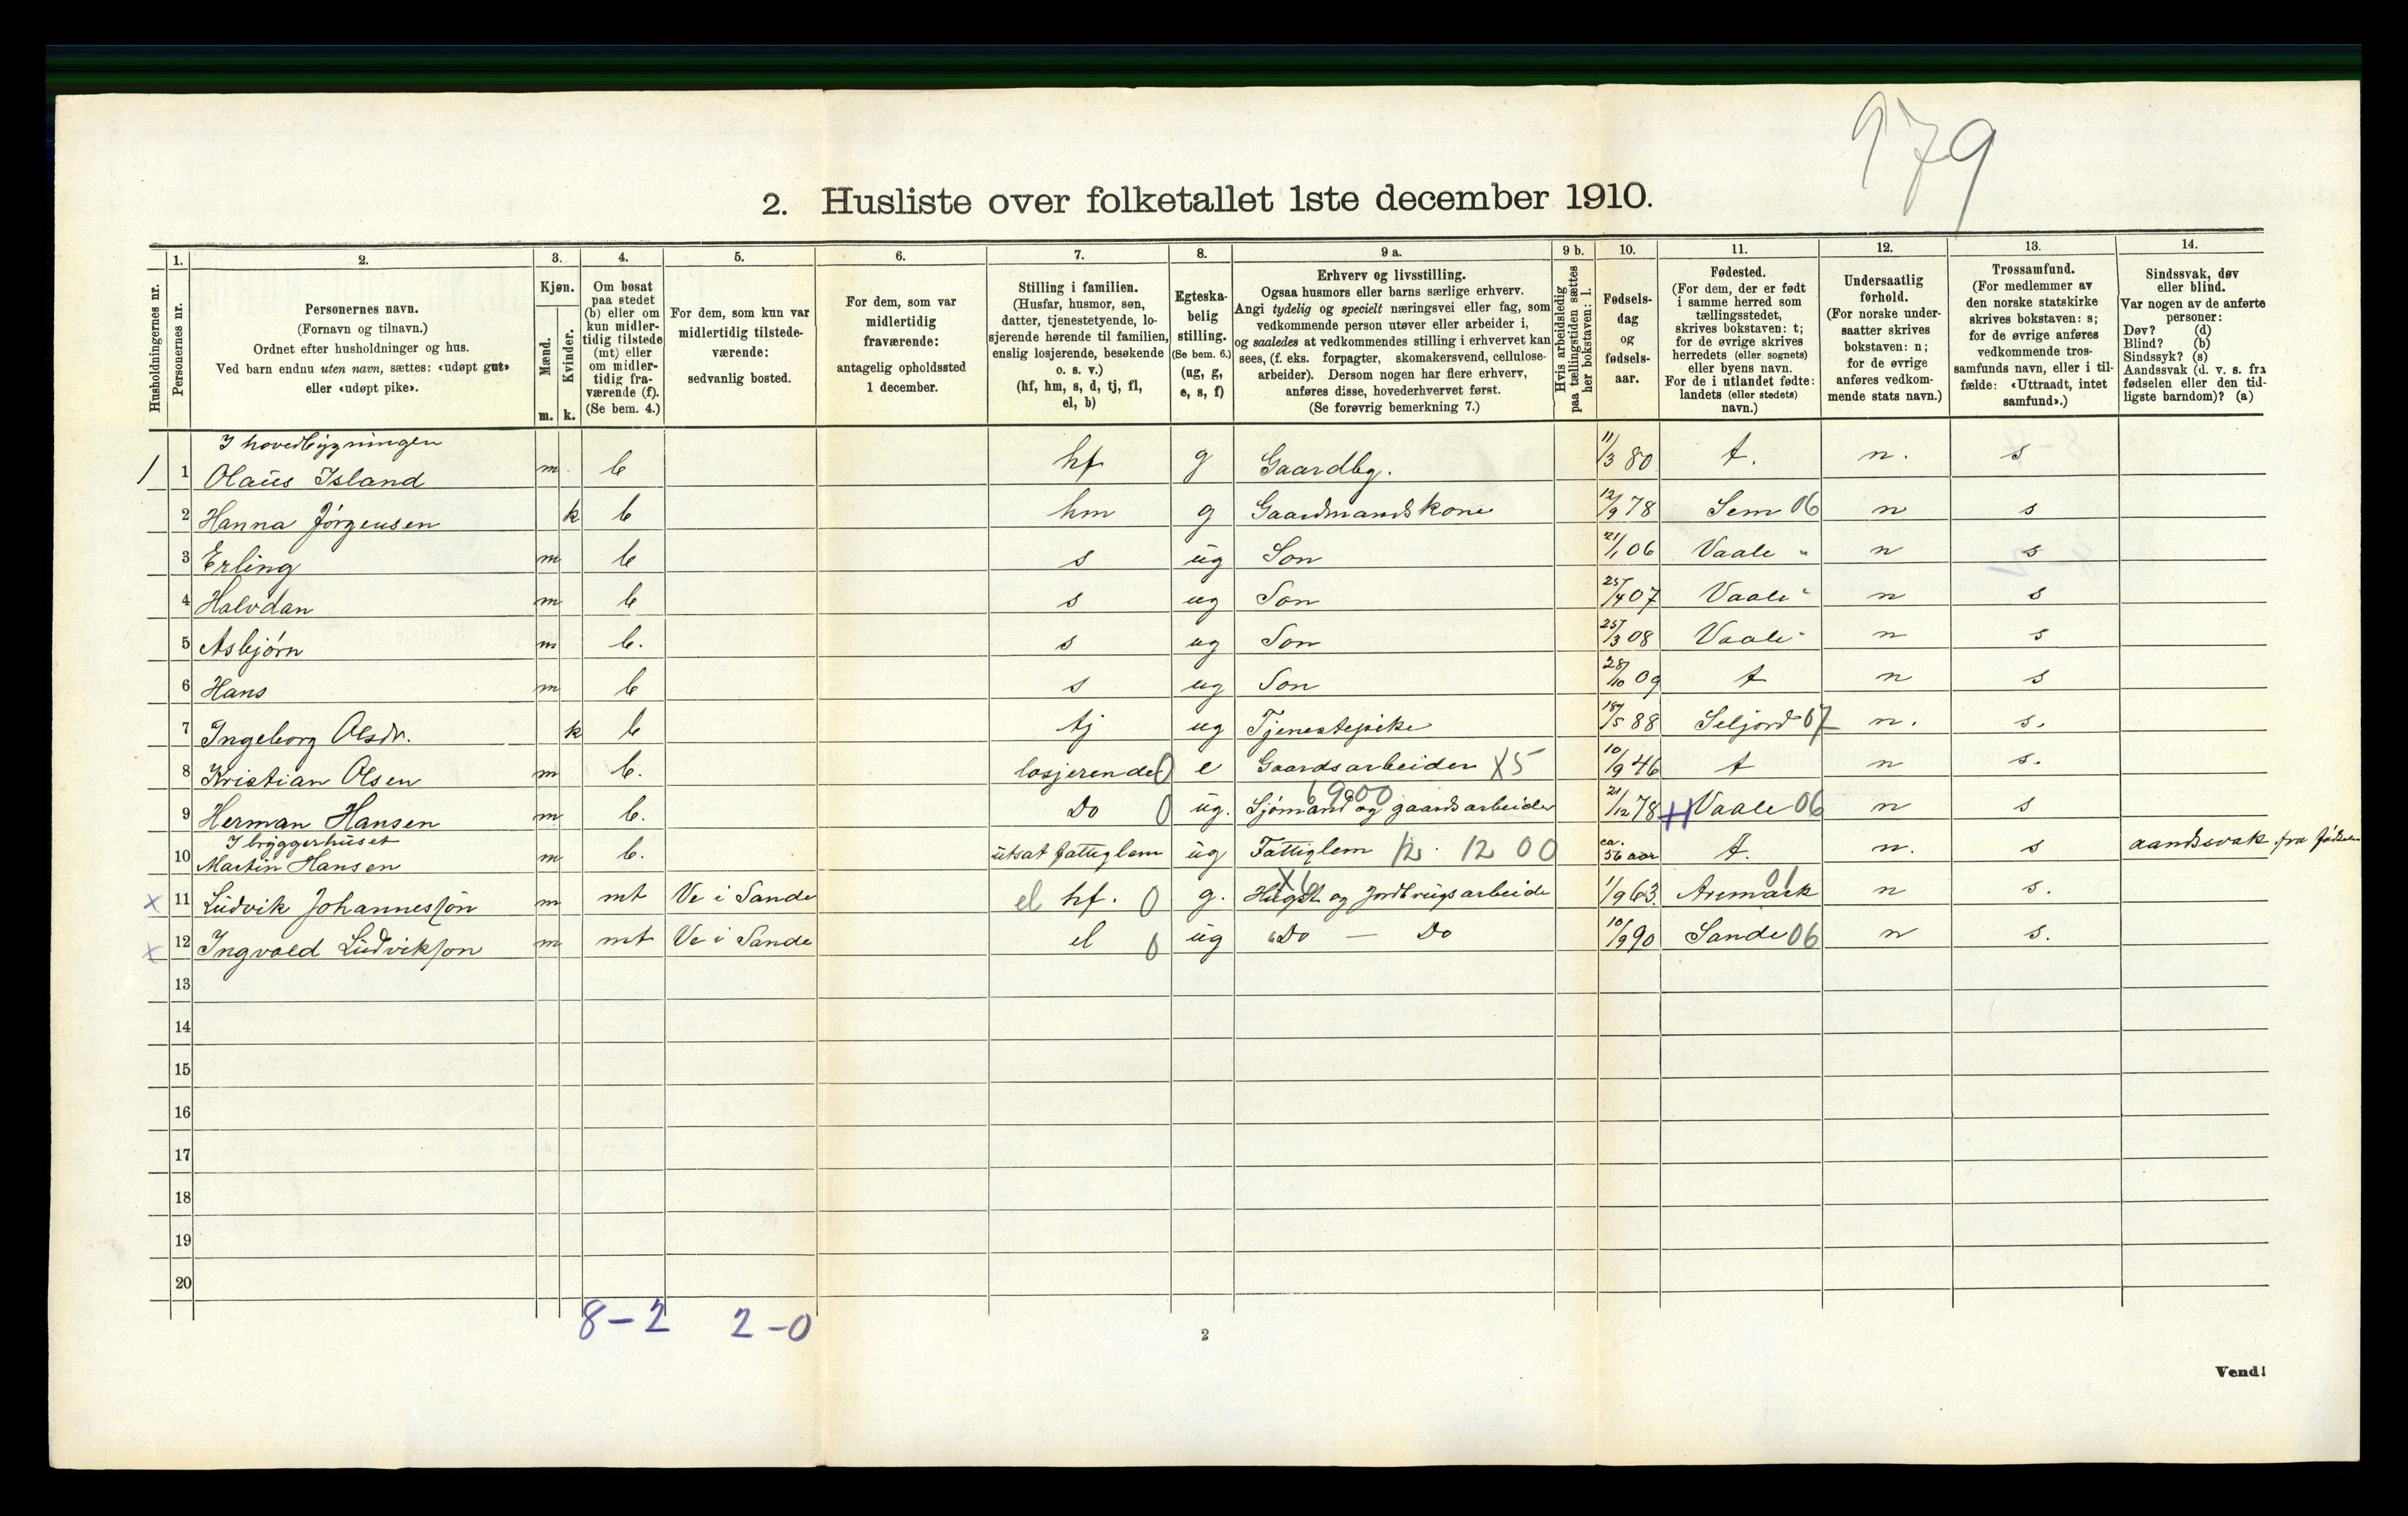 179
2. Husliste over folketallet 1ste december 1910.
Husholdningernes nr.
1. Personernes nr.
2. Personernes navn.
(Fornavn og tilnavn.)
Ordnet efter husholdninger og hus.
Ved barn endnu uten navn, sættes: «udøpt gut»
eller «udøpt pike».
3. Kjøn.
Mænd. m.
Kvinder. k.
4. Om bosat
paa stedet
(b) eller om
kun midler-
tidig tilstede
(mt) eller
om midler-
tidig fra-
værende (f).
(Se bem. 4.)
5. For dem, som kun var
midlertidig tilstede-
værende:
sedvanlig bosted.
6. For dem, som var
midlertidig
fraværende:
antagelig opholdssted
1 december.
7. Stilling i familien.
(Husfar, husmor, søn,
datter, tjenestetyende, lo-
sjerende hørende til familien,
enslig losjerende, besøkende
o. s. v.)
(hf, hm, s, d, tj, fl,
el, b)
8. Egteska-
belig
stilling.
(Se bem. 6.)
(ug, g,
e, s, f)
9 a. Erhverv og livsstilling.
Ogsaa husmors eller barns særlige erhverv.
Angi tydelig og specielt næringsvei eller fag, som
vedkommende person utøver eller arbeider i,
og saaledes at vedkommendes stilling i erhvervet kan
sees, (f. eks. forpagter, skomakersvend, cellulose-
arbeider). Dersom nogen har flere erhverv,
anføres disse, hovederhvervet først.
(Se forøvrig bemerkning 7.)
9 b. Hvis arbeidsledig
paa tællingstiden sættes
her bokstaven: l.
10. Fødsels-
dag
og
fødsels-
aar.
11. Fødested.
(For dem, der er født
i samme herred som
tællingsstedet,
skrives bokstaven: t;
for de øvrige skrives
herredets (eller sognets)
eller byens navn.
For de i utlandet fødte:
landets (eller stedets)
navn.)
12. Undersaatlig
forhold.
(For norske under-
saatter skrives
bokstaven: n;
for de øvrige
anføres vedkom-
mende stats navn.)
13. Trossamfund.
(For medlemmer av
den norske statskirke
skrives bokstaven: s;
for de øvrige anføres
vedkommende tros-
samfunds navn, eller i til-
fælde: «Uttraadt, intet
samfund».)
14. Sindssvak, døv
eller blind.
Var nogen av de anførte
personer:
Døv? (d)
Blind? (b)
Sindssyk? (s)
Aandssvak (d. v. s. fra
fødselen eller den tid-
ligste barndom)? (a)
I hovedbygningen
1 1 Olaus Island m. b hf g Gaardbg. 11/3 80 t. n. s
2 Hanna Jörgensen k b hm g Gaardmandskone 12/9 78 Sem 06 n s
3 Erling m b s ug Son 21/1 06 Vaale " n s
4 Halvdan m b s ug Son 25/4 07 Vaale " n s
5 Asbjörn m b. s ug Son 25/3 08 Vaale " n s
6 Hans m b s ug Son 28/10 09 t n s
7 Ingeborg Olsdr. k b tj ug Tjenestepike 18/5 88 Seljord 07 n. s.
8 Kristian Olsen m b. losjerende 0 e Gaardsarbeider X5 10/9 46 t n s.
6900
9 Herman Hansen m b. Do 0 ug. Sjömand og gaardsarbeider 21/12 78 Vaale 06 n s
I bryggerhuset
10 Martin Hansen m b. utsat fattiglem ug Fattiglem 12. 1200 ca. 56 aar t. n. s aandssvak fra fødselen
x 11 Ludvik Johannesson m mt Ve i Sande el hf. 0 g. Hugst og Jordbrugsarbeide X6 1/9 63. Aremark 01 n s.
x 12 Ingvald Ludvikson m mt Ve i Sande el 0 ug Do — Do 10/9 90 Sande 06 n s.
13
14
15
16
17
18
19
20
8-2 2-0
2
Vend!